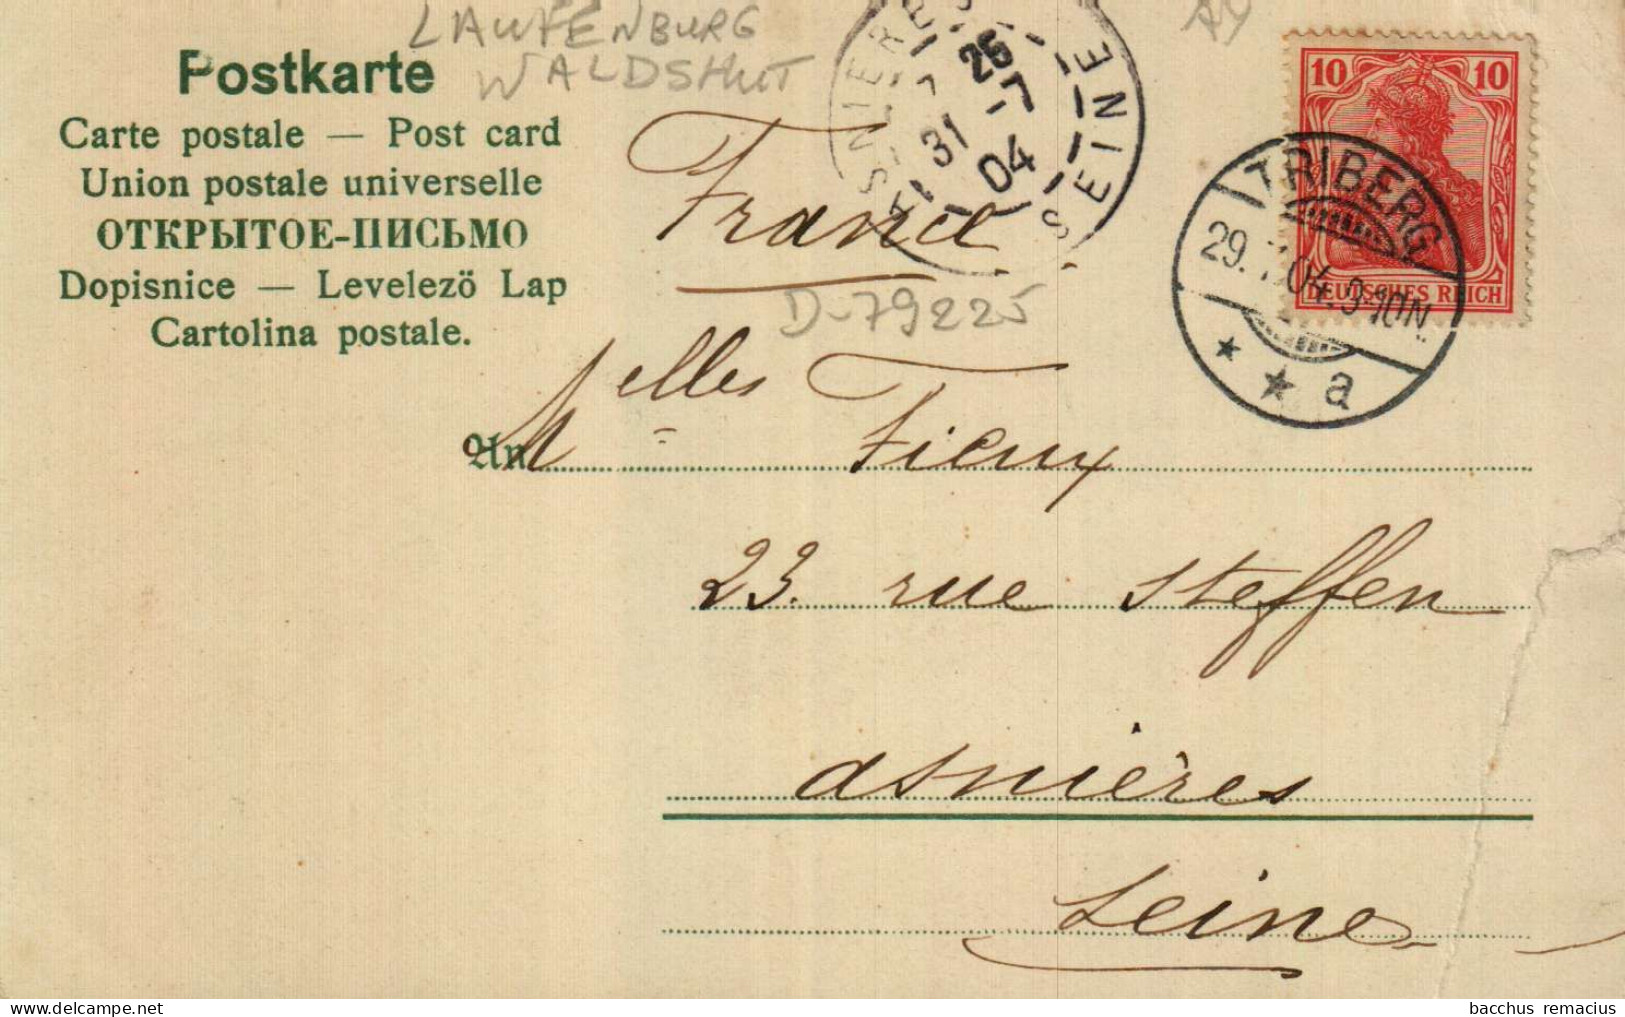 LAUFENBURG
WALDSHUT
Postkarte
Carte postale — Post card
Union postale universelle
ОТКРЫТОЕ-ПИСЬМО
Dopisnice — Levelezö Lap
Cartolina postale.
ASNIÈRES
SEINE
31 -7
04
10 10
DEUTSCHES REICH
TRIBERG
29. 7.04. 9-10N.
* * a
France
D-79225
An Melles Fieux
23. rue Steffen
Asnières
Seine
bacchus remacius